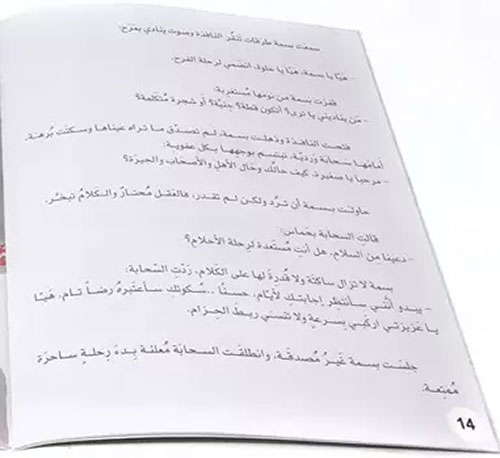 سمعت بسمة طرقات تنقُر النافذة وصوت ينادي بمَرَح:
- هيّا يا بسمة، هيّا يا حلوة، انضمي لرحلة الفرح.
قفزت بسمة من نومها مُستغربة:
- مَن يناديني يا تُرى؟ أتكون قطة؟ جنيّة؟ أو شجرة مُتكلمة؟
فتحت النافذة وذهلت بسمة، لم تصدّق ما تراه عيناها وسكتت بُرهَة،
أمامَها سَحابة ورديّة، تبتسم بوجهها بكل عفوية:
- مرحبا يا صغيرة، كيف حالُك وحَال الأهلِ والأصحاب والجيرَة؟
حاولت بسمة أن ترُد ولكن لم تقدر، فالعَقل مُحتارٌ والكلامُ تبخّر.
قالتِ السّحابة بحَماس:
- دعينا من السلام، هل أنتِ مُستَعدة لرحلة الأحلام؟
بسمة لا تزال ساكتَة ولا قُدرةَ لها على الكَلام، رَدّتِ السّحابة:
- يبدو أنّني سأنتظِر إجابتكِ لأيام، حسنًا .. سُكوتكِ سأعتبرهُ رضاً تام، هَيّا
يا عَزيزتي اركَبي بسرعةٍ ولا تنسَي ربطَ الحِزام.
جلسَت بسمة غَيرُ مُصدقَة، وانطلقَت السحابَة مُعلنة بِدءَ رِحلةٍ ساحرَة
مُمتِعة.
14